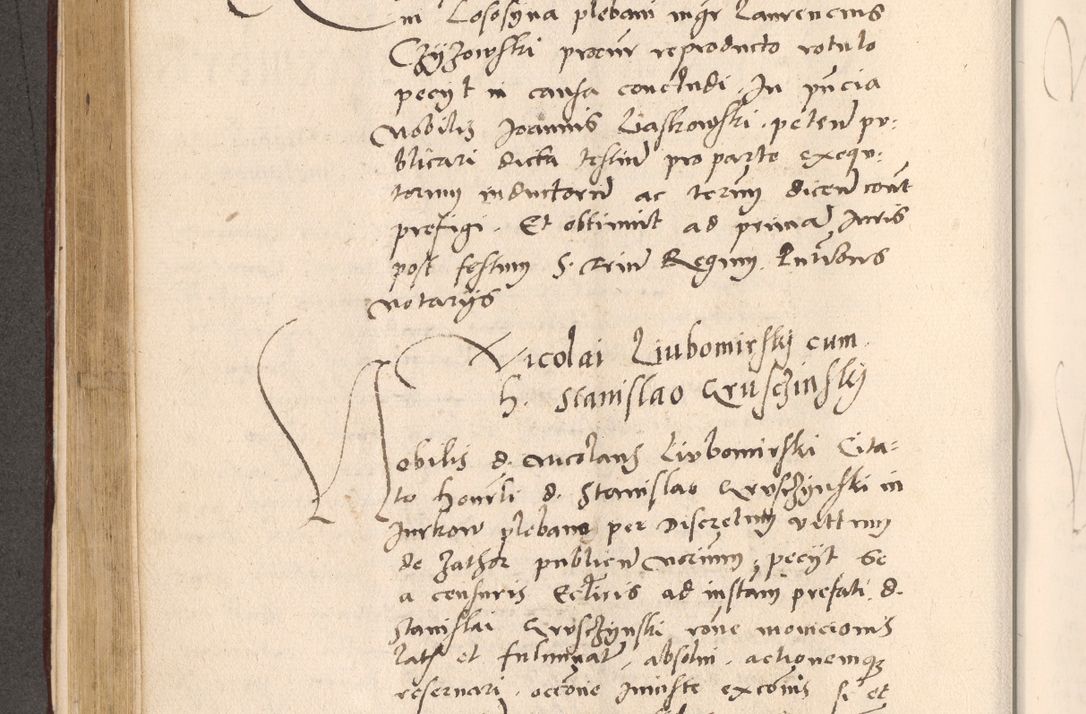 in Lososyna plebani mgr Laurencius
Czyzowski procur reproducto rotulo
pecyt in causa concludi. In pncia
Nobilis Joannis Liaskowski. peten pu=
blicari dicta testiu pro parte exequ=
torum inductoru ac termi dicen cont
prefigi. Et obtinuit ad prima Juris
post festum S. Triu Regum.
Notarijs
Nicolai Liubomirskj cum
h. Stanislao Gruschinskj
Nobilis d. Nicolaus Liubomirski Cita=
to honrli d. Stanislao Gruschynski in
Jurkow plebano per Discretum
de Zathor publicu Notrium, pecyt se
a censuris Ecclicis ad instam prefati d.
Stanislai Gruschynski rone monicionis
lats et fulminat, absolui. actionemq
reseruari. occone iniuste excois si et